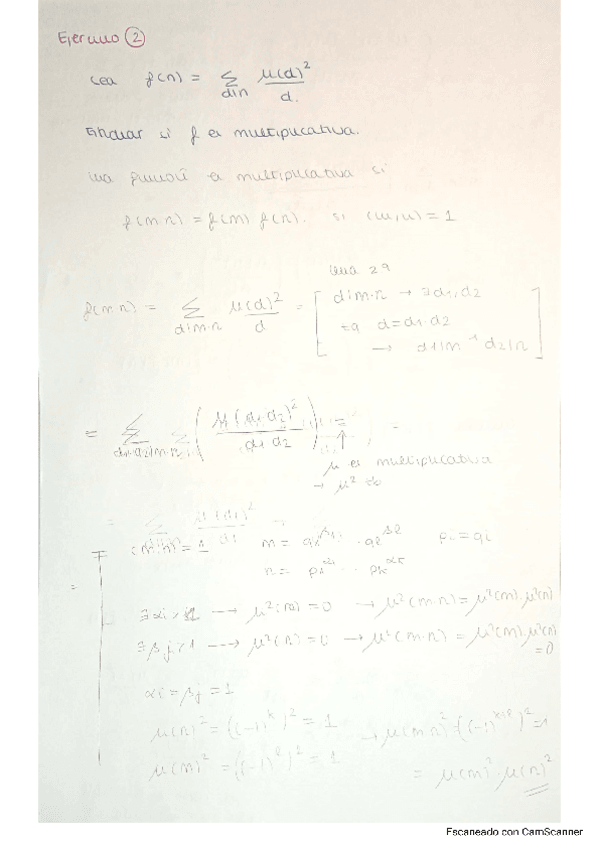 Ejercicio 2
sea f(n) = Σ_{d|n} μ(d)²/d.
Estudiar si f es multiplicativa.
una función es multiplicativa si
f(m·n) = f(m) f(n). si (m,n) = 1
f(m·n) = Σ_{d|m·n} μ(d)²/d = [ d|m·n → ∃ d1, d2
d = d1·d2
→ d1|m ∧ d2|n ]
= Σ_{d1·d2|m·n} ( μ(d1 d2)² / d1 d2 ) =
μ es multiplicativa
→ μ²
(m,n) = 1 m = q1^β1 · ql^βl
n = p1^α1 · · pk^αk
∃ αi > 1 → μ²(n) = 0 → μ²(m·n) = μ²(m)·μ²(n)
∃ βj > 1 → μ²(n) = 0 → μ²(m·n) = μ²(m)·μ²(n) = 0
αi = βj = 1
μ(n)² = ((-1)^k)² = 1 → μ(m·n)² = ((-1)^{k+l})² = 1
μ(m)² = ((-1)^l)² = 1 = μ(m)²·μ(n)²
Escaneado con CamScanner